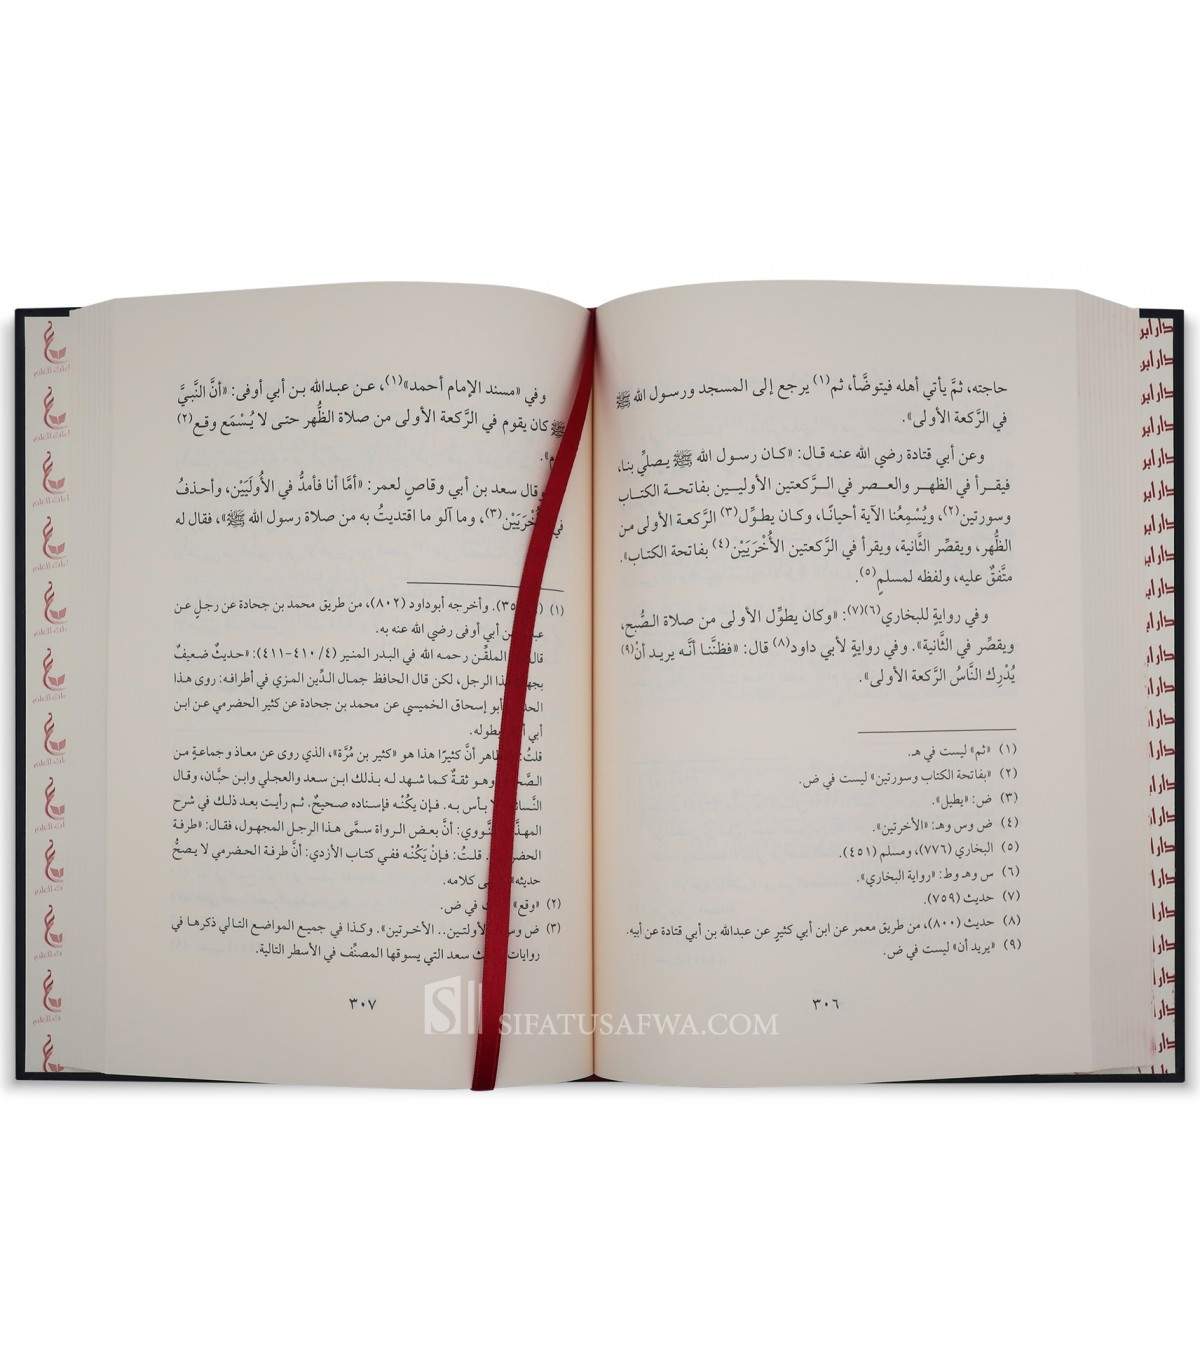 حاجته، ثمَّ يأتي أهله فيتوضَّأ، ثم(١) يرجع إلى المسجد ورسول الله ﷺ
في الرَّكعة الأولى».
وعن أبي قتادة رضي الله عنه قال: «كان رسول الله ﷺ يصلِّي بنا،
فيقرأ في الظهر والعصر في الرَّكعتين الأوليين بفاتحة الكتاب
وسورتين(٢)، ويُسْمِعُنا الآية أحيانًا، وكان يطوِّل(٣) الرَّكعة الأولى من
الظُّهر، ويقصِّر الثَّانية، ويقرأ في الرَّكعتين الأُخْرَيَيْن(٤) بفاتحة الكتاب».
متَّفقٌ عليه، ولفظه لمسلم(٥).
وفي روايةٍ للبخاري(٦)(٧): «وكان يطوِّل الأولى من صلاة الصُّبح،
ويقصِّر في الثَّانية». وفي روايةٍ لأبي داود(٨) قال: «فظنَنَّا أنَّه يريد أنْ(٩)
يُدْرِك النَّاسُ الرَّكعة الأولى».
(١) «ثم» ليست في هـ.
(٢) «بفاتحة الكتاب وسورتين» ليست في ض.
(٣) ض: «يطيل».
(٤) ض وس وهـ: «الأخرتين».
(٥) البخاري (٧٧٦)، ومسلم (٤٥١).
(٦) س وهـ وط: «رواية البخاري».
(٧) حديث (٧٥٩).
(٨) حديث (٨٠٠)، من طريق معمر عن ابن أبي كثيرٍ عن عبدالله بن أبي قتادة عن أبيه.
(٩) «يريد أن» ليست في ض.
٣٠٦
وفي «مسند الإمام أحمد»(١)، عن عبدالله بن أبي أوفى: «أنَّ النَّبيَّ
ﷺ كان يقوم في الرَّكعة الأولى من صلاة الظُّهر حتى لا يُسْمَع وقع(٢)
وقال سعد بن أبي وقاصٍ لعمر: «أمَّا أنا فأمدُّ في الأُولَيَيْن، وأحذفُ
في الأُخْرَيَيْن(٣)، وما آلو ما اقتديتُ به من صلاة رسول الله ﷺ»، فقال له
(١) وأخرجه أبوداود (٨٠٢)، من طريق محمد بن جحادة عن رجلٍ عن
بن أبي أوفى رضي الله عنه به.
قال الملقِّن رحمه الله في البدر المنير (٤/ ٤١٠-٤١١): «حديثٌ ضعيفٌ
هذا الرجل، لكن قال الحافظ جمال الدِّين المزي في أطرافه: روى هذا
أبو إسحاق الخميسي عن محمد بن جحادة عن كثير الحضرمي عن ابن
أبي بطوله.
قلتُ: أنَّ كثيرًا هذا هو «كثير بن مُرَّة»، الذي روى عن معاذ وجماعةٍ من
وهو ثقةٌ كما شهد له بذلك ابن سعد والعجلي وابن حبَّان، وقال
لا بأس به. فإن يكُنْه فإسناده صحيحٌ. ثم رأيت بعد ذلك في شرح
للنَّووي: أنَّ بعض الرواة سمَّى هذا الرجل المجهول، فقال: «طرفة
قلتُ: فإنْ يَكُنْه ففي كتاب الأزدي: أنَّ طرفة الحضرمي لا يصحُّ
حديثه» كلامه.
(٢) «وقع» في ض.
(٣) ض وس الأولتين.. الأخرتين». وكذا في جميع المواضع التالي ذكرها في
روايات سعد التي يسوقها المصنِّف في الأسطر التالية.
٣٠٧
SIFATUSAFWA.COM